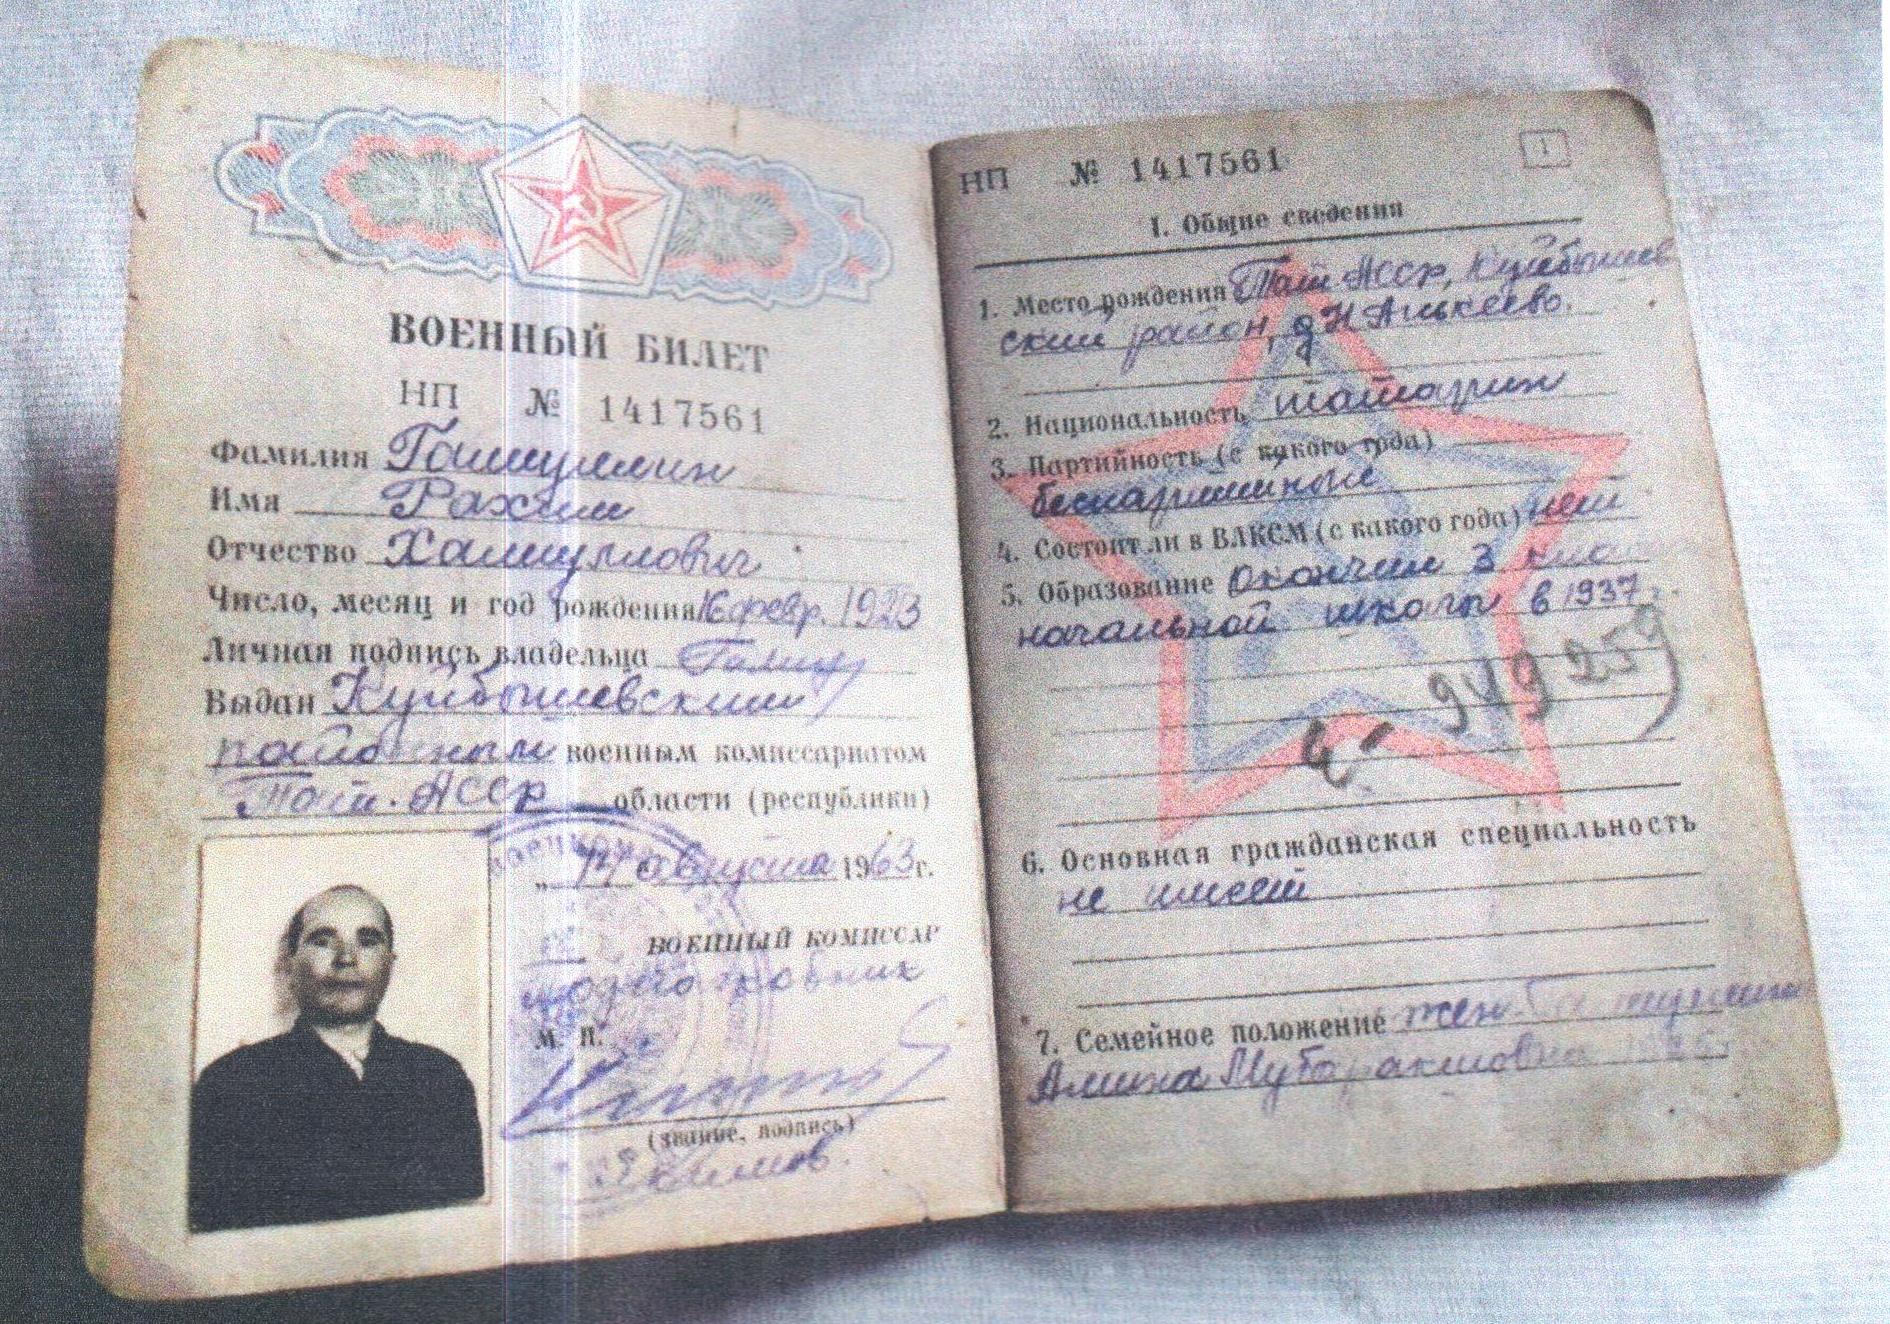 ВОЕННЫЙ БИЛЕТ
НП № 1417561
Фамилия Гатиуллин
Имя Рахим
Отчество Хатиуллович
Число, месяц и год рождения 16 февр. 1923
Личная подпись владельца
Выдан Куйбышевским
районным военным комиссариатом
Тат. АССР области (республики)
„14" августа 1963 г.
ВОЕННЫЙ КОМИССАР
подполковник
М. П.
(звание, подпись)
НП № 1417561
1
I. Общие сведения
1. Место рождения Тат АССР, Куйбышев
ский район, д Н Алькеево.
2. Национальность татарин
3. Партийность (с какого года)
беспартийный
4. Состоит ли в ВЛКСМ (с какого года) нет
5. Образование окончил 3 клас
начальной школы в 1937
6. Основная гражданская специальность
не имеет
7. Семейное положение жен.
Амина Мубаракшовна